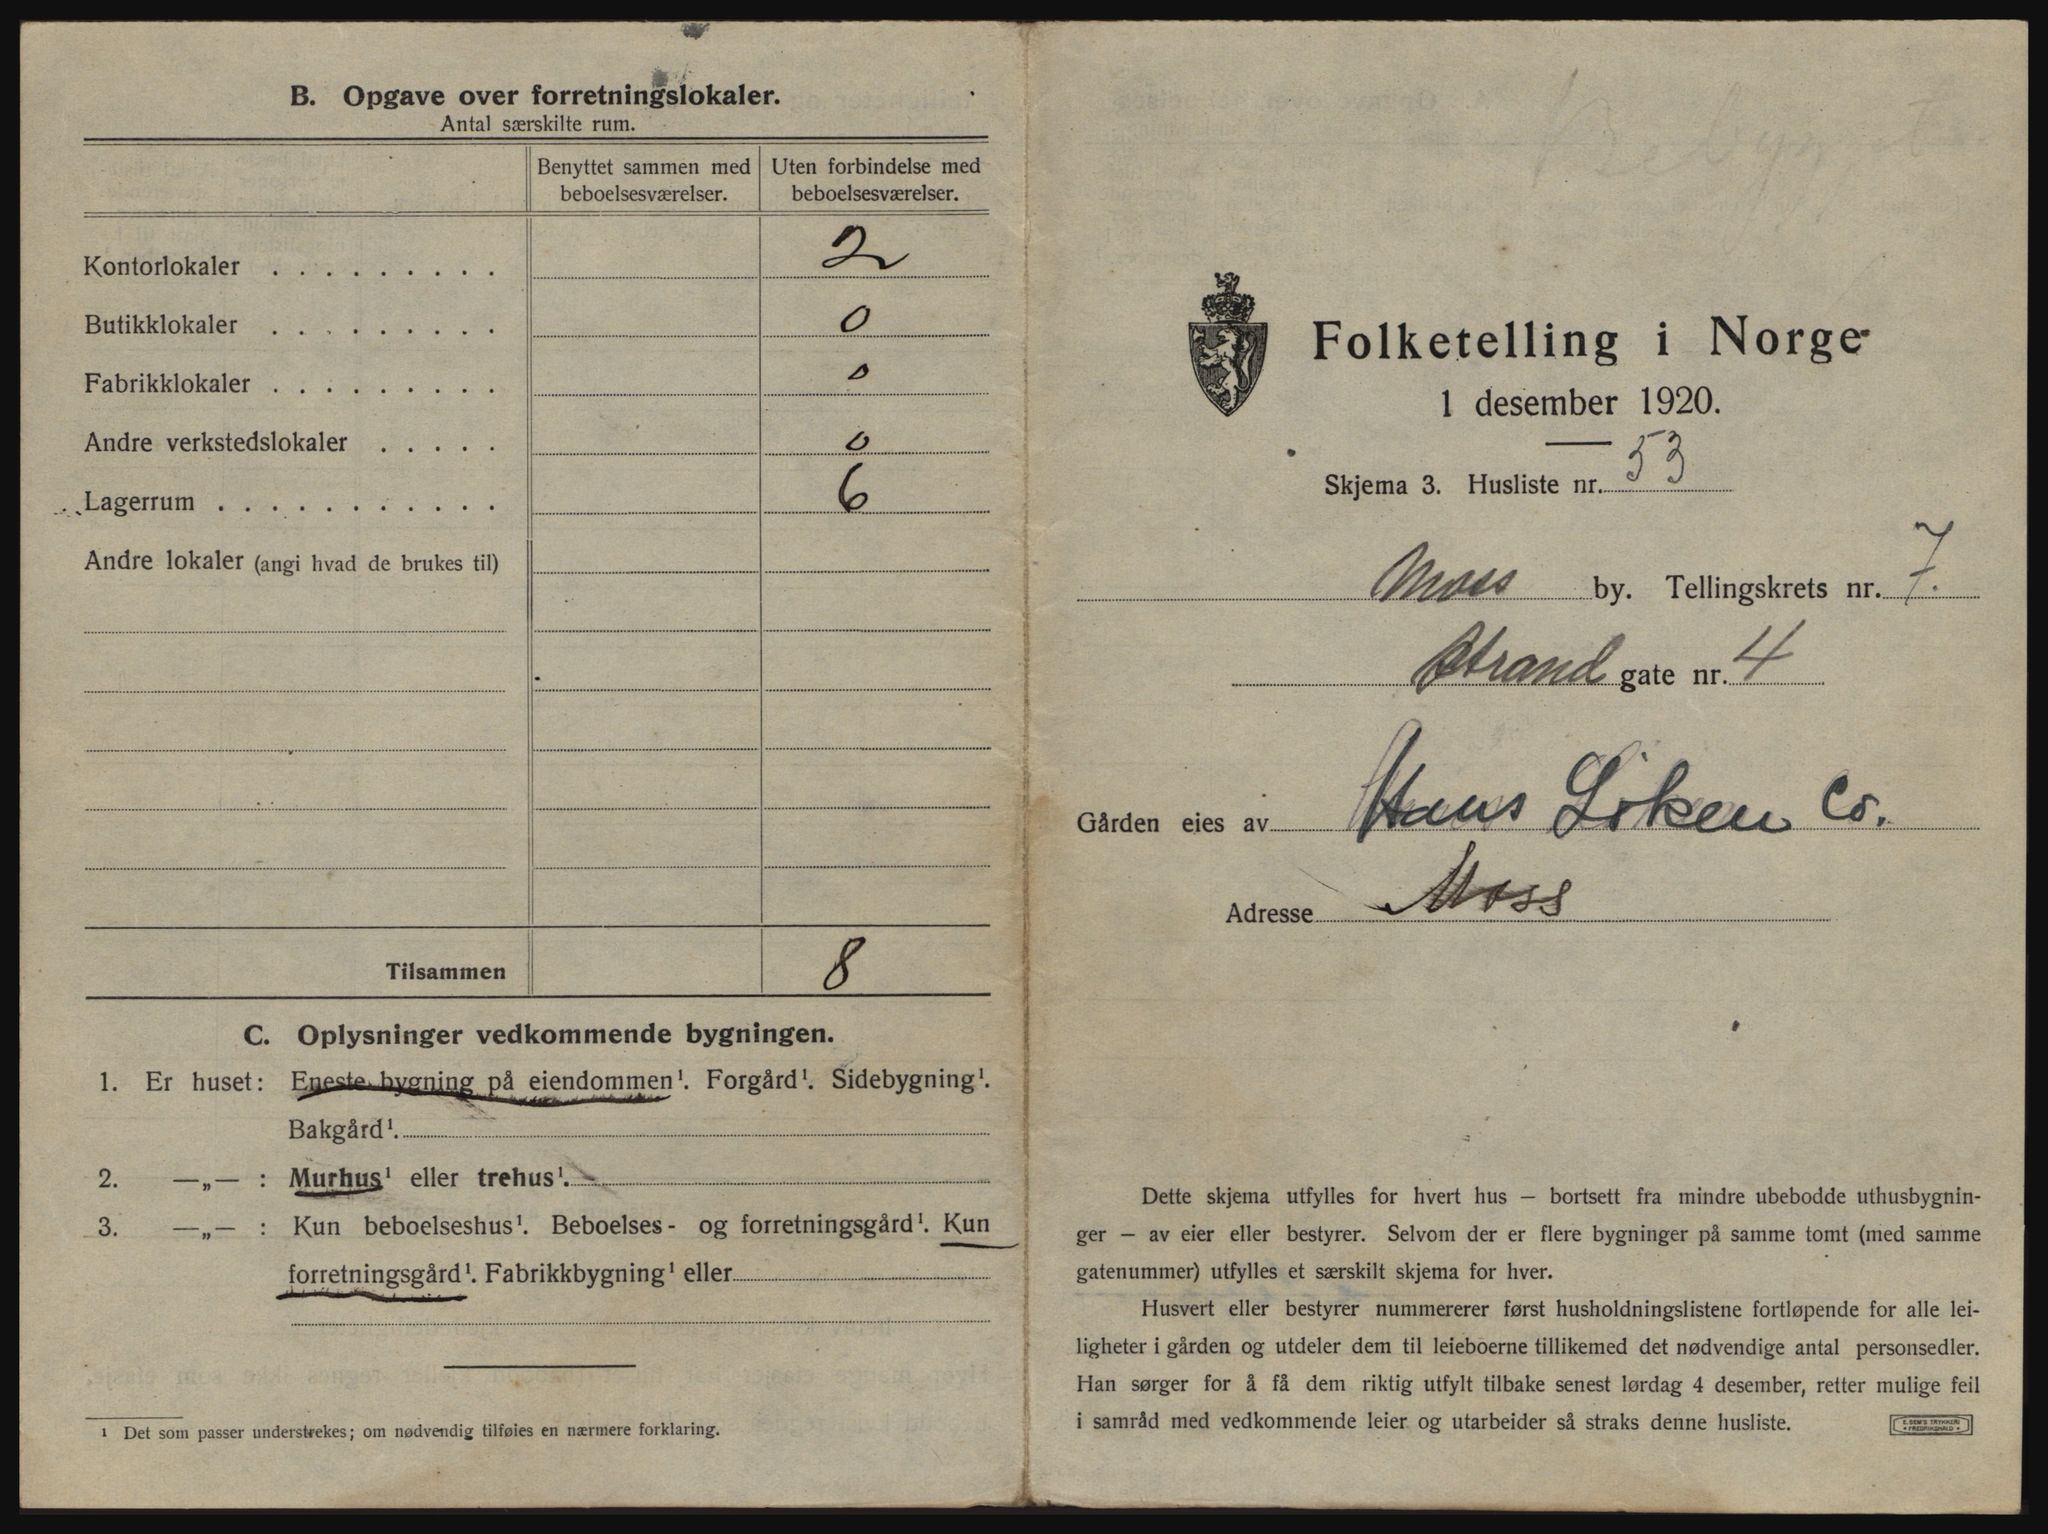 B. Opgave over forretningslokaler.
Antal særskilte rum.
Benyttet sammen med beboelsesværelser.
Uten forbindelse med beboelsesværelser.
Kontorlokaler . . . . . . . . . 2
Butikklokaler . . . . . . . . . 0
Fabrikklokaler . . . . . . . . . 0
Andre verkstedslokaler . . . . . 0
Lagerrum . . . . . . . . . . . 6
Andre lokaler (angi hvad de brukes til)
Tilsammen 8
C. Oplysninger vedkommende bygningen.
1. Er huset: Eneste bygning på eiendommen¹. Forgård¹. Sidebygning¹.
Bakgård¹.
2. —„— : Murhus¹ eller trehus¹.
3. —„— : Kun beboelseshus¹. Beboelses- og forretningsgård¹. Kun
forretningsgård¹. Fabrikkbygning¹ eller
¹ Det som passer understrekes; om nødvendig tilføies en nærmere forklaring.
Folketelling i Norge
1 desember 1920.
Skjema 3. Husliste nr. 53
Moss by. Tellingskrets nr. 7.
Strand gate nr. 4
Gården eies av Hans Löken Co.
Adresse Moss
Dette skjema utfylles for hvert hus – bortsett fra mindre ubebodde uthusbygnin-
ger – av eier eller bestyrer. Selvom der er flere bygninger på samme tomt (med samme
gatenummer) utfylles et særskilt skjema for hver.
Husvert eller bestyrer nummererer først husholdningslistene fortløpende for alle lei-
ligheter i gården og utdeler dem til leieboerne tillikemed det nødvendige antal personsedler.
Han sørger for å få dem riktig utfylt tilbake senest lørdag 4 desember, retter mulige feil
i samråd med vedkommende leier og utarbeider så straks denne husliste.
E. SEM'S TRYKKERI
• FREDRIKSHALD •